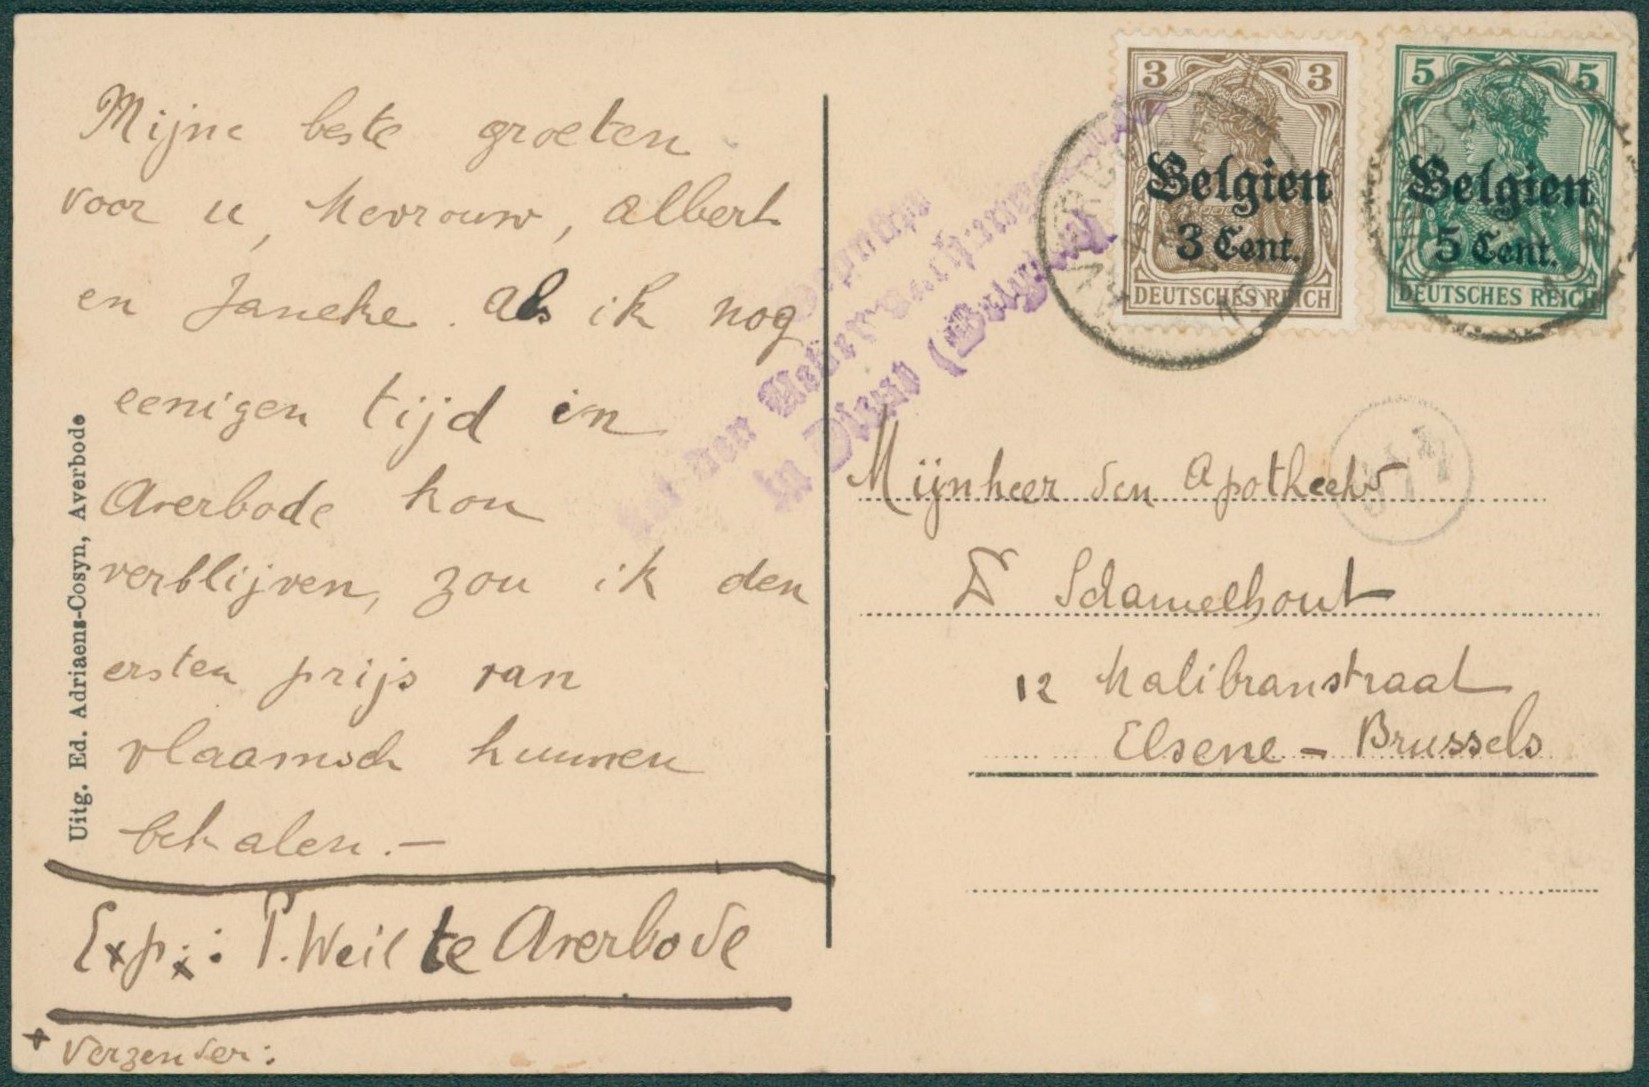 Mijne beste groeten
voor u, Mevrouw, Albert
en Janeke. Als ik nog
eenigen tijd in
Averbode kon
verblijven, zou ik den
ersten prijs van
vlaamsch kunnen
behalen.—
Exp.: P. Weil te Averbode
* Verzender:
Uitg. Ed. Adriaens-Cosyn, Averbode
in Diest (Belgien).
3 3
Belgien
3 Cent.
DEUTSCHES REICH
5 5
Belgien
5 Cent.
DEUTSCHES REICH
Mijnheer den Apotheek
Dr Schamelhout
12 Malibranstraat
Elsene - Brussels